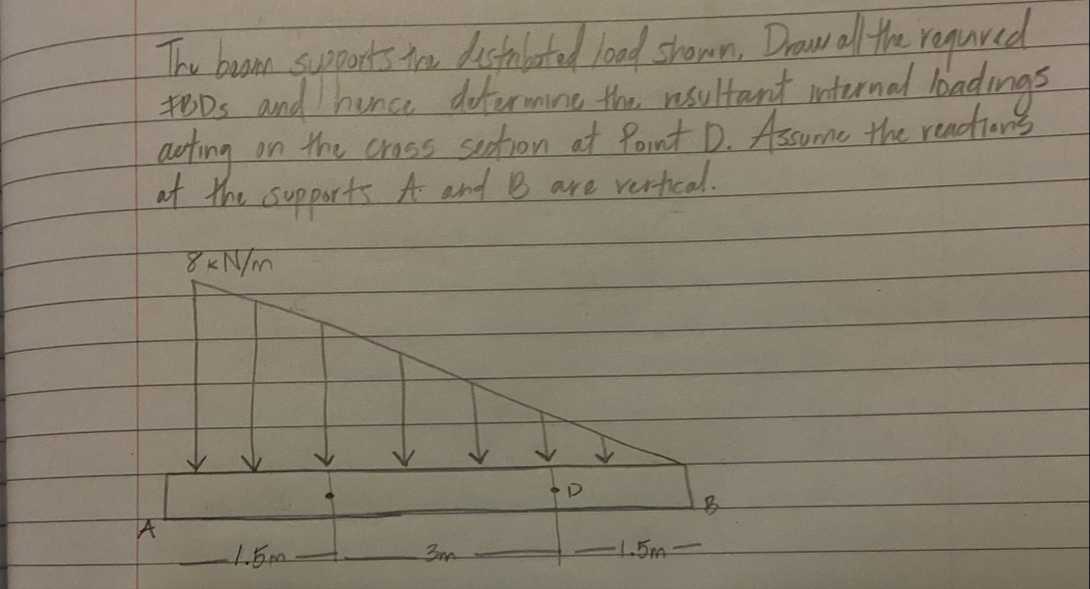 The beam supports the distributed load shown. Draw all the required
FBDs and hence determine the resultant internal loadings
acting on the cross section at Point D. Assume the reactions
at the supports A and B are vertical.
8kN/m
D
B
A
1.5m 3m 1.5m